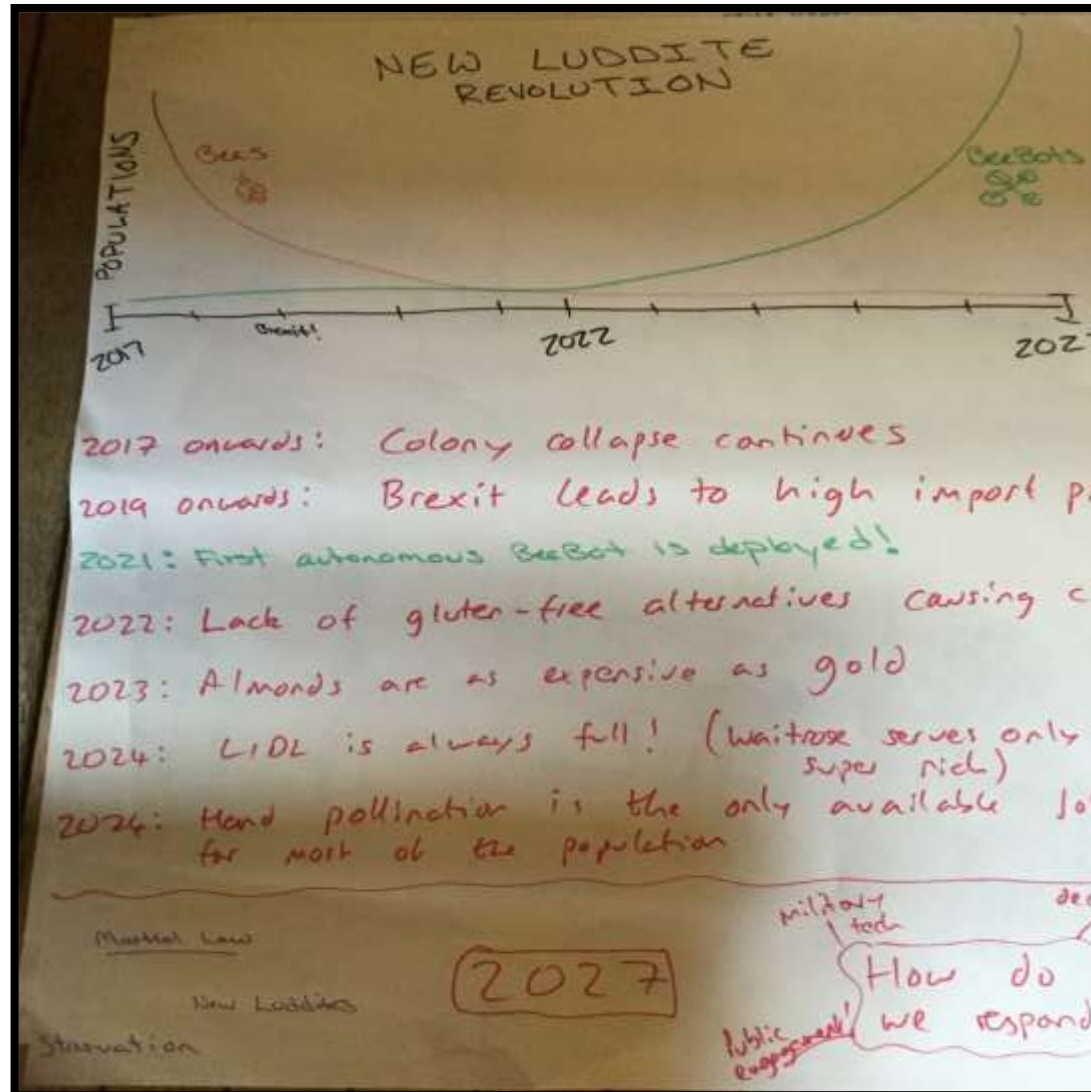 NEW LUDDITE
REVOLUTION
POPULATIONS
Bees
BeeBots
2017
Brexit!
2022
202
2017 onwards: Colony collapse continues
2019 onwards: Brexit leads to high import p
2021: First autonomous BeeBot is deployed!
2022: Lack of gluten-free alternatives causing c
2023: Almonds are as expensive as gold
2024: LIDL is always full! (Waitrose serves only
super rich)
2026: Hand pollination is the only available jo
for most of the population
Martial Law
New Luddites
Starvation
2027
military
tech
dec
How do
we respond
Public
engagement!